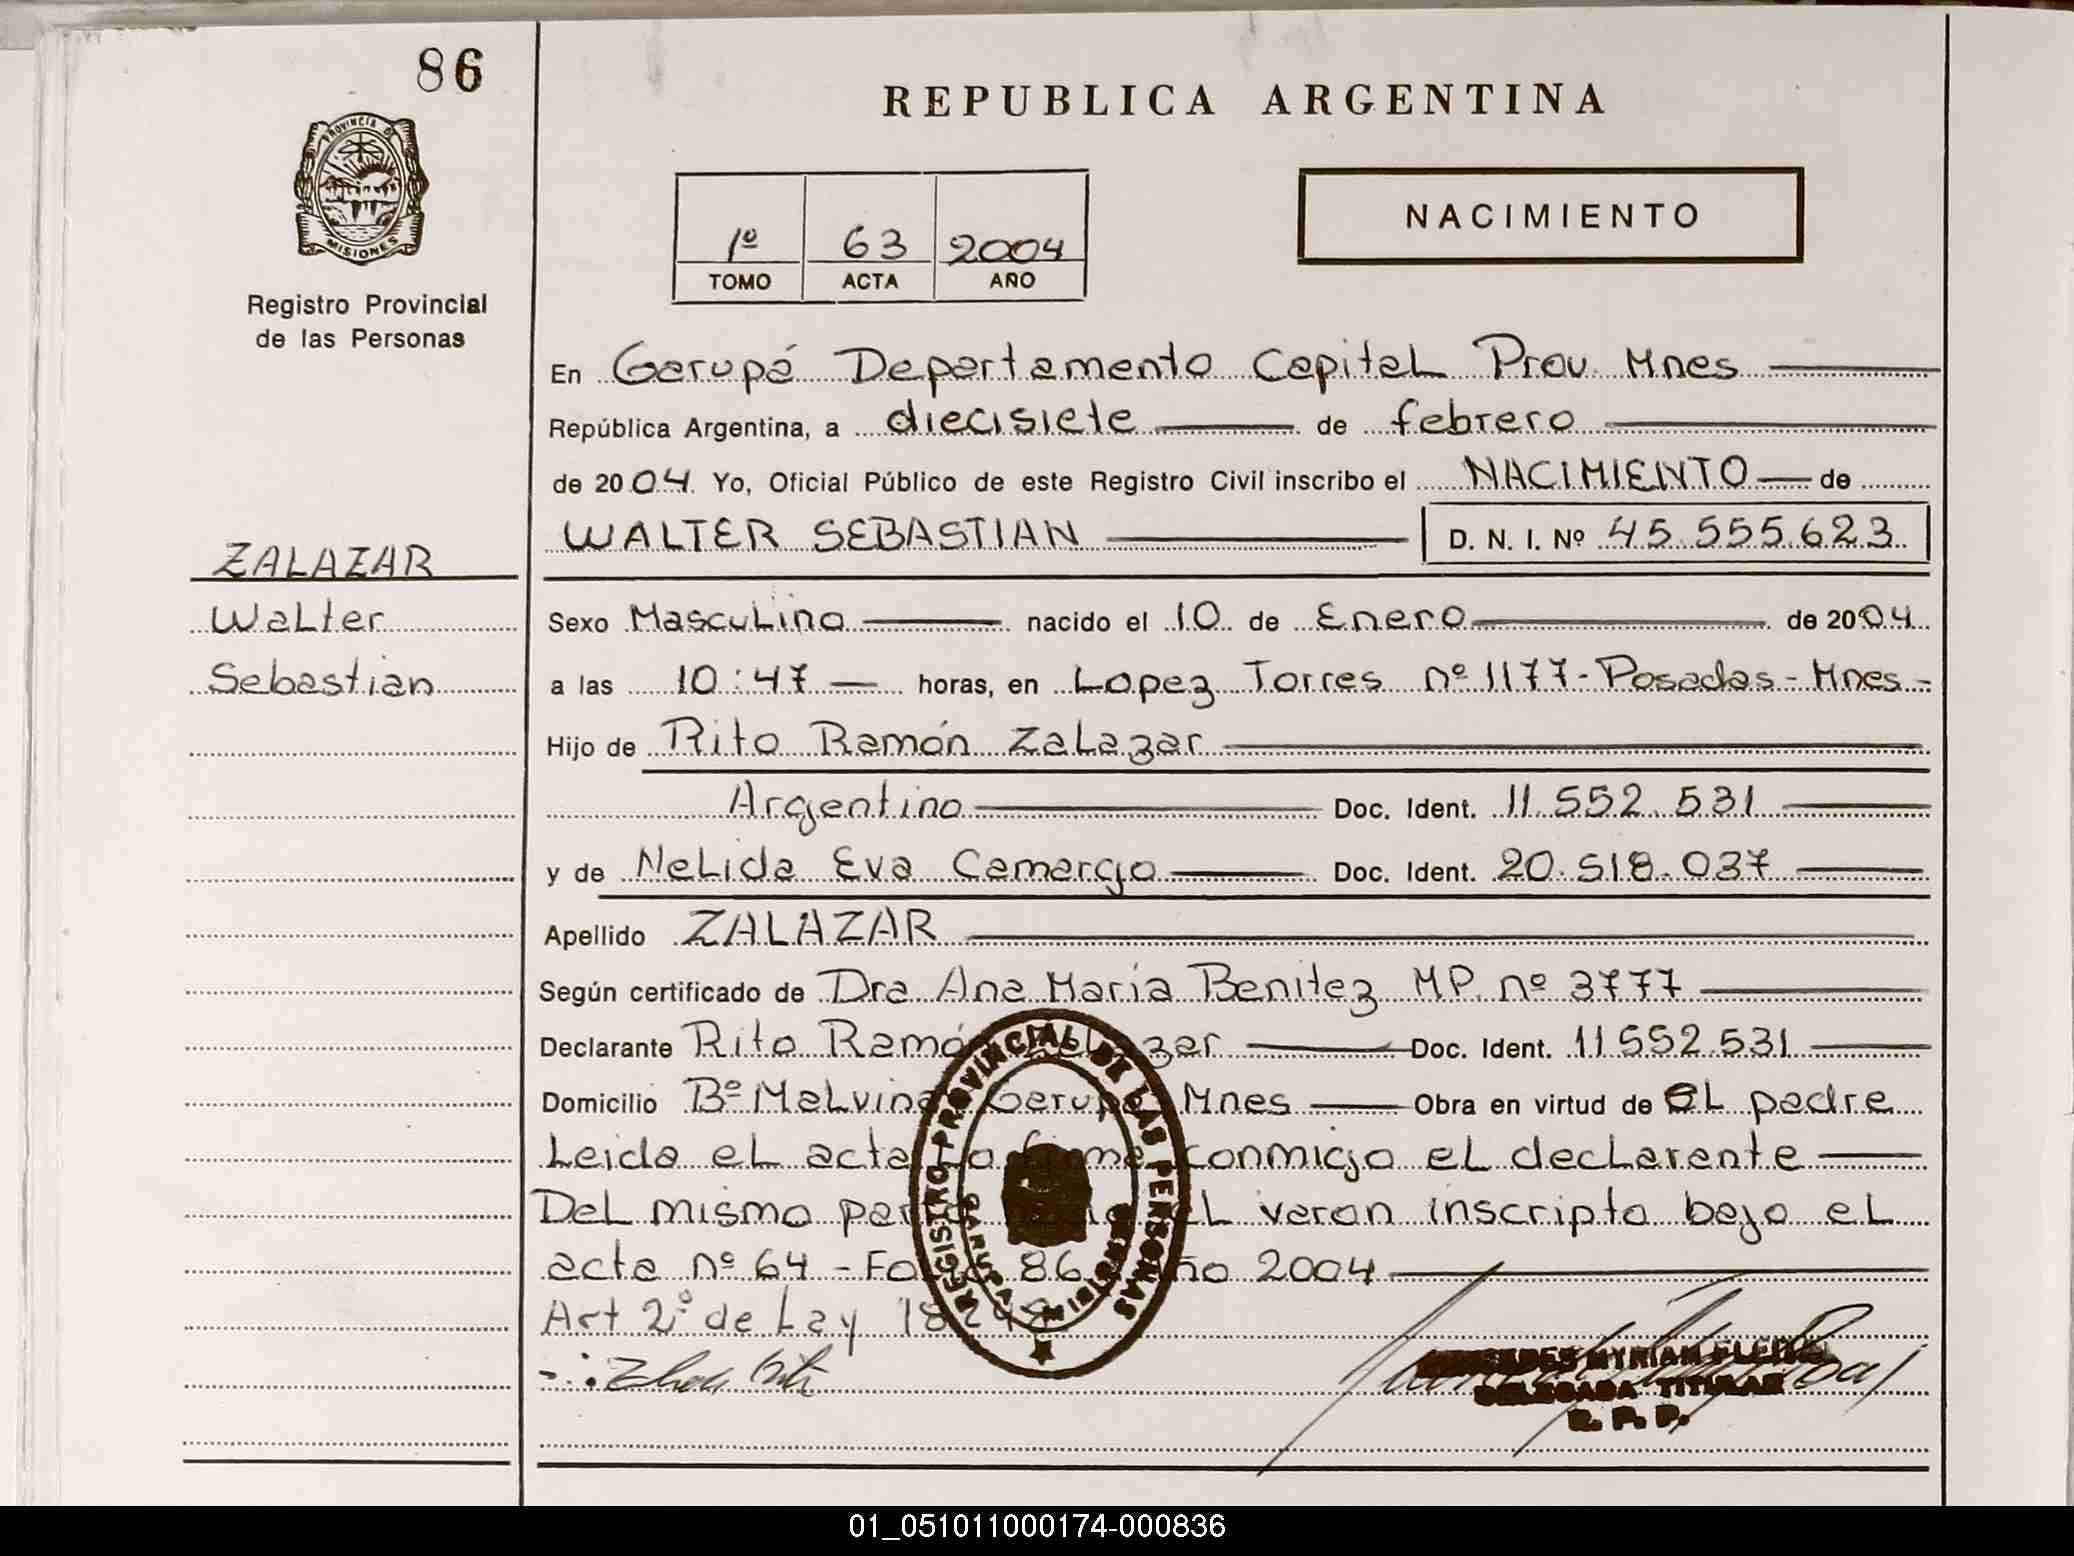 86
PROVINCIA DE
MISIONES
Registro Provincial
de las Personas
ZALAZAR
Walter
Sebastian
REPUBLICA ARGENTINA
1º 63 2004
TOMO ACTA AÑO
NACIMIENTO
En Garupá Departamento Capital Prov. Mnes
República Argentina, a diecisiete de febrero
de 2004 Yo, Oficial Público de este Registro Civil inscribo el NACIMIENTO de
WALTER SEBASTIAN D. N. I. Nº 45.555.623
Sexo Masculino nacido el 10 de Enero de 2004
a las 10:47 horas, en Lopez Torres nº 1177-Posadas-Mnes-
Hijo de Rito Ramón Zalazar
Argentino Doc. Ident. 11.552.531
y de Nelida Eva Camargo Doc. Ident. 20.518.037
Apellido ZALAZAR
Según certificado de Dra Ana Maria Benitez MP. nº 3777
Declarante Rito Ramón Zalazar Doc. Ident. 11.552.531
Domicilio Bº Malvinas Garupá Mnes Obra en virtud de el padre
Leida el acta la firma conmigo el declarante
Del mismo parto nació el varon inscripto bajo el
acta nº 64 - Folio 86 Año 2004
Art 2º de Ley 18248
REGISTRO PROVINCIAL DE LAS PERSONAS
GARUPA MISIONES
MYRIAM
DELEGADA TITULAR
R. P. P.
01_051011000174-000836